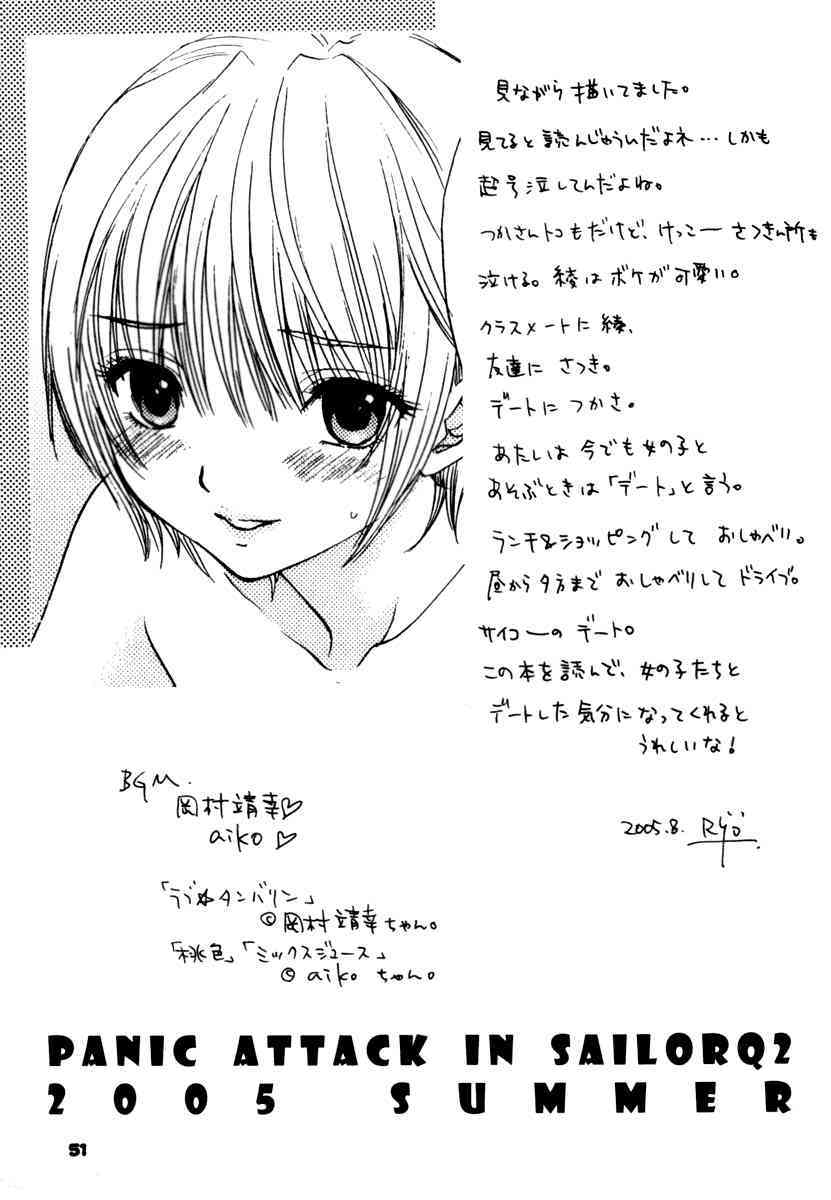 見ながら描いてました。
見てると読んじゃういだよネ…しかも
超号泣してんだよね。
つかさんトコもだけど、けっこーさつきん所も
泣ける。綾はボケが可愛い。
クラスメートに綾、
友達にさつき。
デートにつかさ。
あたいは今でも女の子と
あそぶときは「デート」と言う。
ランチ&ショッピングしておしゃべり。
昼から夕方までおしゃべりしてドライブ。
サイコーのデート。
この本を読んで、女の子たちと
デートした気分になってくれると
うれしいな!
2005.8. Ryo
BGM.
岡村靖幸♡
aiko♡
タンバリン」
©岡村靖幸ちゃん。
「桃色」「ミックスジュース」
©aikoちゃん。
PANIC ATTACK IN SAILORQ2
2005 SUMMER
51